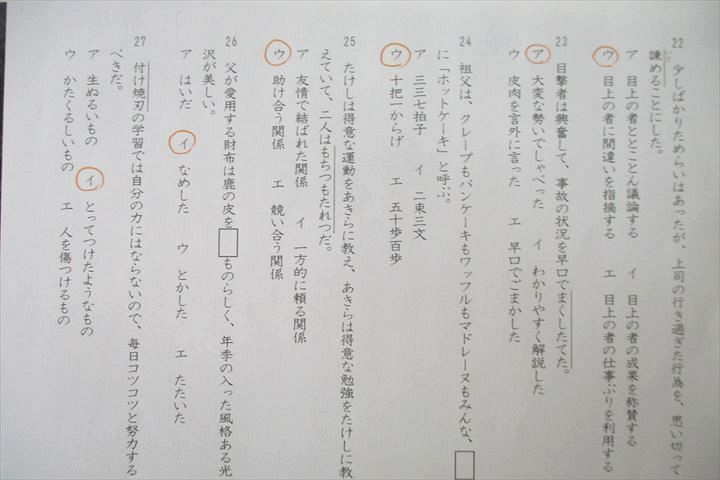 22 少しばかりためらいはあったが、上司の行き過ぎた行為を、思い切って
諫めることにした。
ア 目上の者ととことん議論する イ 目上の者の成果を称賛する
ウ 目上の者に間違いを指摘する エ 目上の者の仕事ぶりを利用する
23 目撃者は興奮して、事故の状況を早口でまくしたてた。
ア 大変な勢いでしゃべった イ わかりやすく解説した
ウ 皮肉を言外に言った エ 早口でごまかした
24 祖父は、クレープもパンケーキもワッフルもマドレーヌもみんな、□
に「ホットケーキ」と呼ぶ。
ア 三三七拍子 イ 二束三文
ウ 十把一からげ エ 五十歩百歩
25 たけしは得意な運動をあきらに教え、あきらは得意な勉強をたけしに教
えていて、二人はもちつもたれつだ。
ア 友情で結ばれた関係 イ 一方的に頼る関係
ウ 助け合う関係 エ 競い合う関係
26 父が愛用する財布は鹿の皮を□ものらしく、年季の入った風格ある光
沢が美しい。
ア はいだ イ なめした ウ とかした エ たたいた
27 付け焼刃の学習では自分の力にはならないので、毎日コツコツと努力する
べきだ。
ア 生ぬるいもの イ とってつけたようなもの
ウ かたくるしいもの エ 人を傷つけるもの